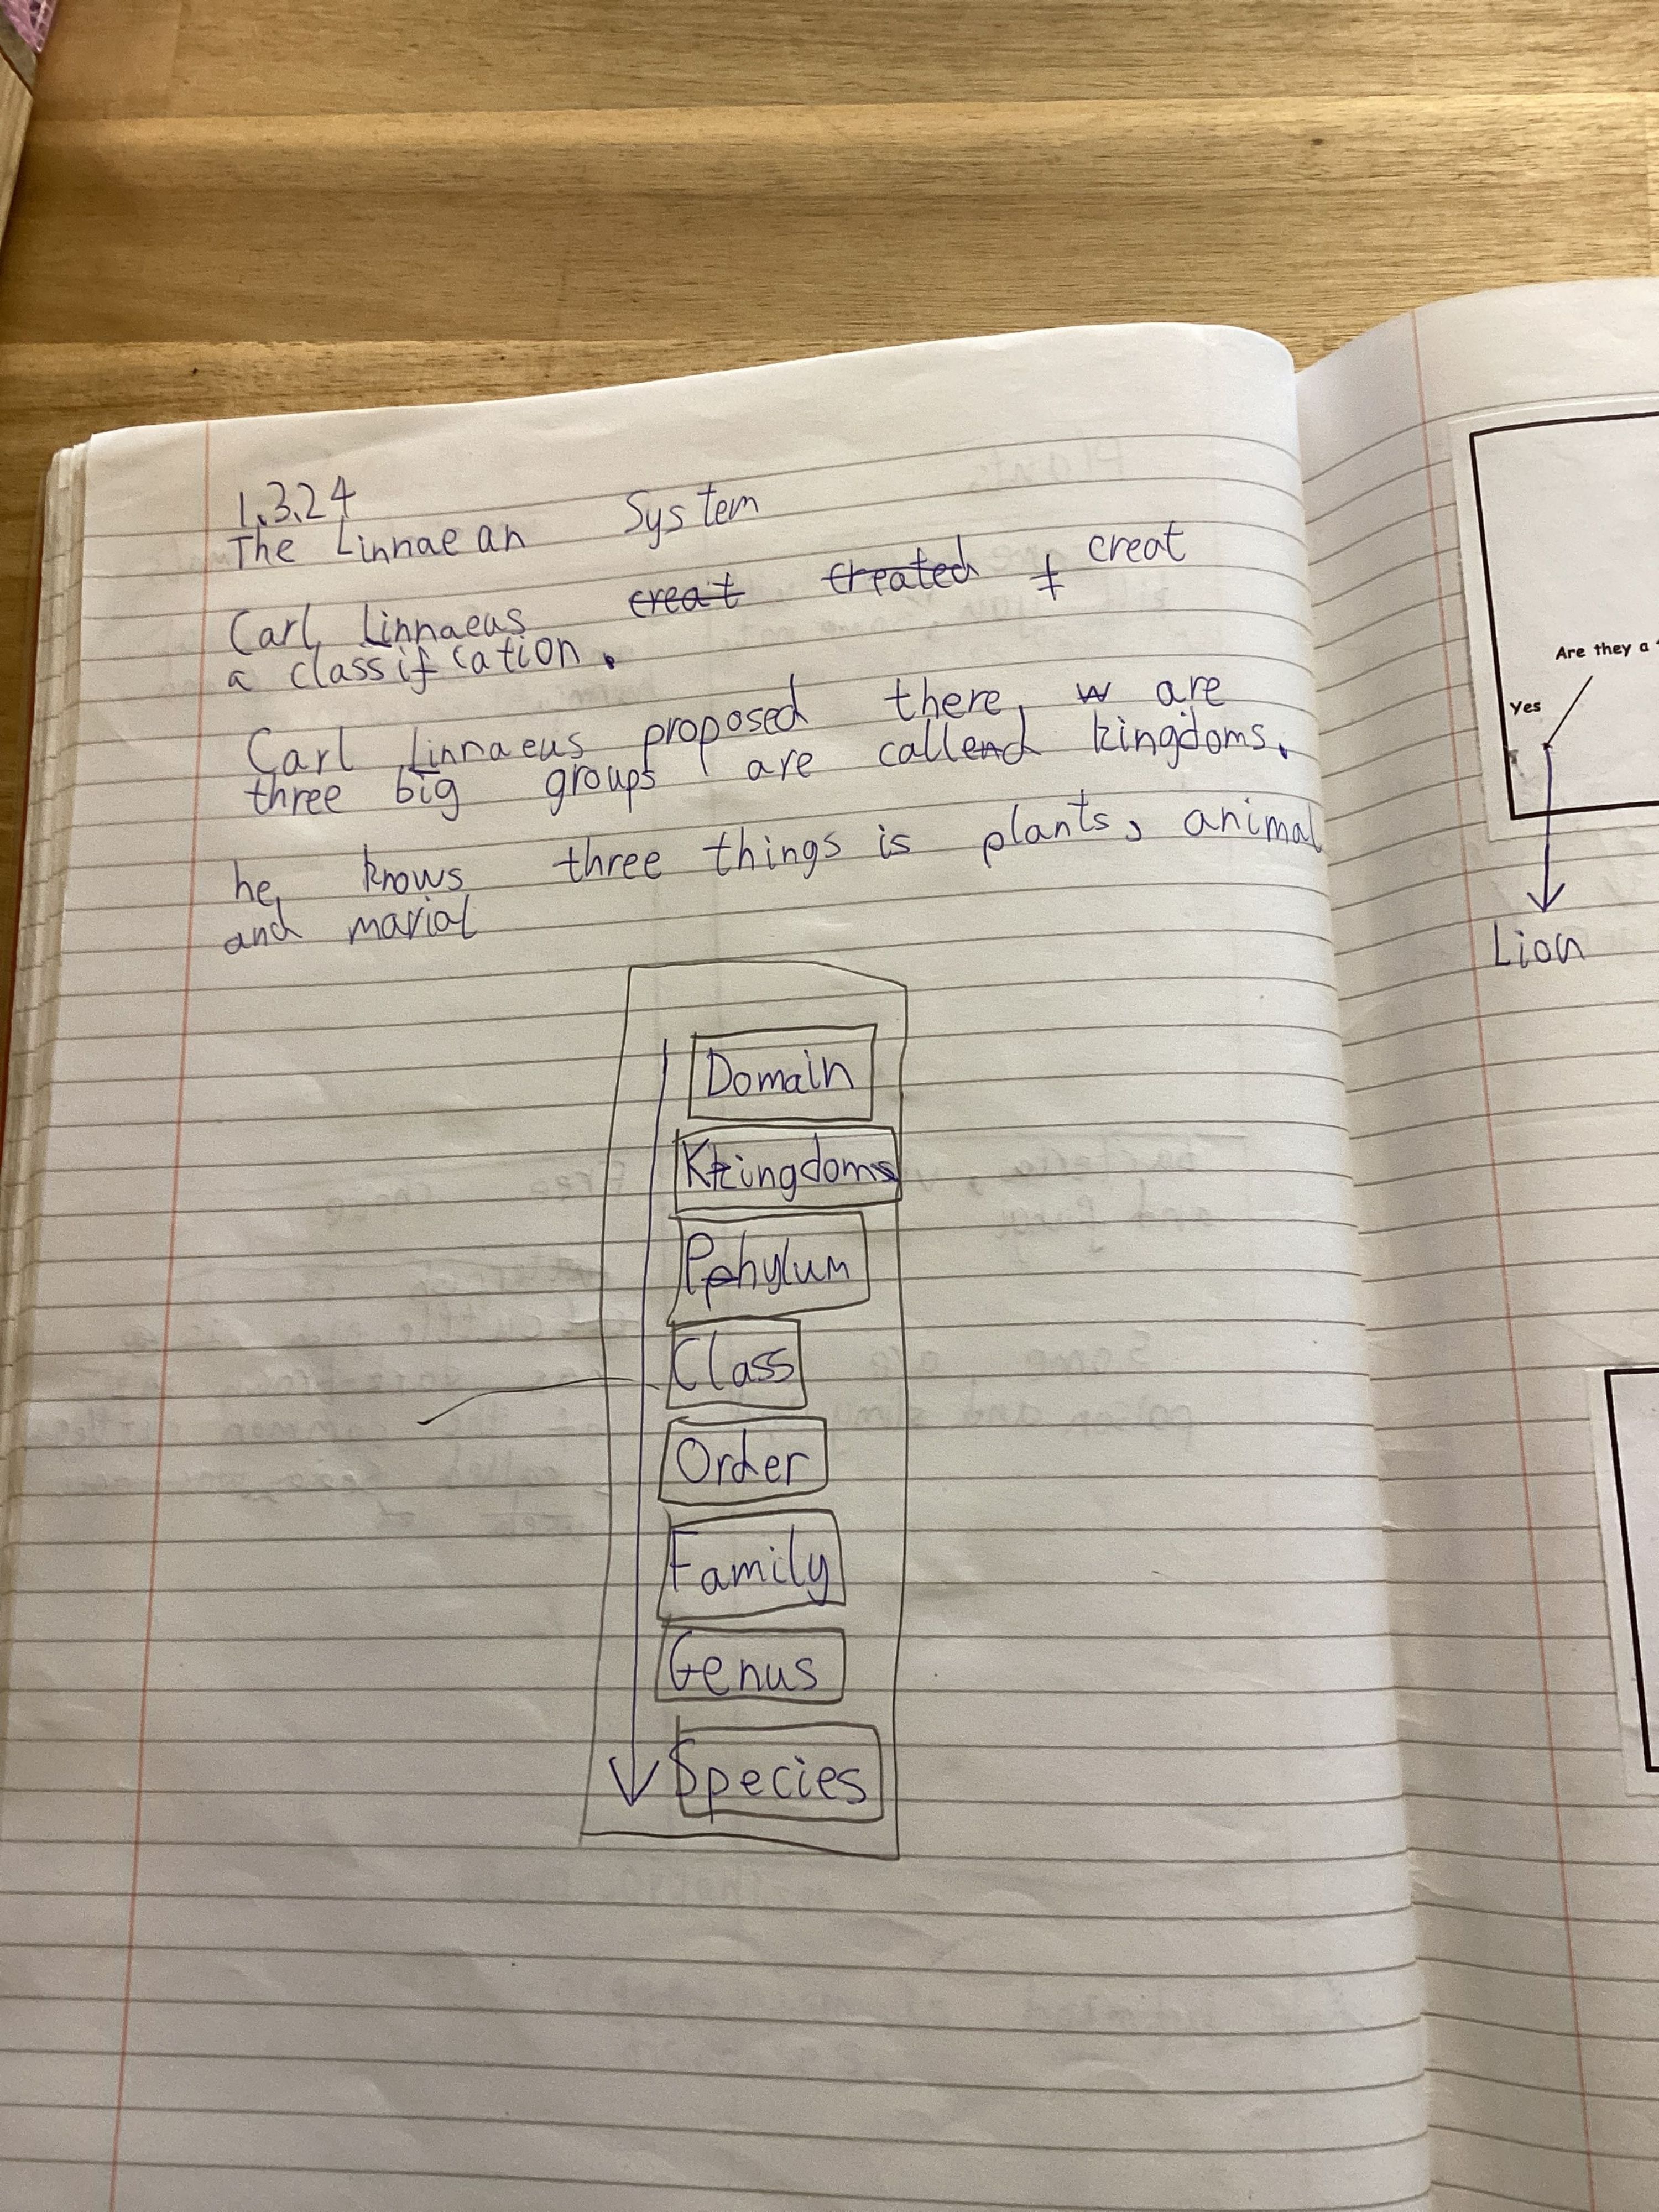 1.3.24
The Linnaean System
Carl Linnaeus creat created t creat
a classification.
Carl Linnaeus proposed there w are
three big groups are callend kingdoms.
he knows three things is plants, animal
and marial
Domain
Kkingdoms
Pphylum
Class
Order
Family
Genus
Species
Are they a
Yes
Lion